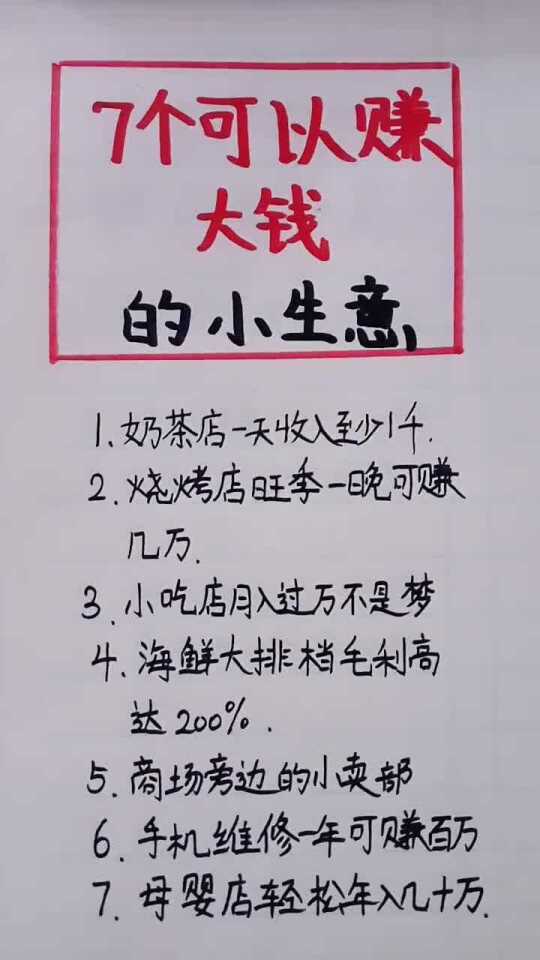 7个可以赚
大钱
的小生意
1.奶茶店一天收入至少1千.
2.烧烤店旺季一晚可赚
几万.
3.小吃店月入过万不是梦
4.海鲜大排档毛利高
达200%.
5.商场旁边的小卖部
6.手机维修一年可赚百万
7.母婴店轻松年入几十万.